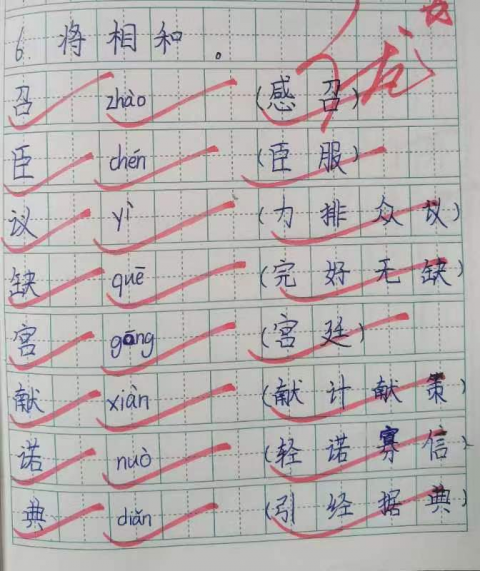 6. 将相和。
优
召 zhào (感召)
臣 chén (臣服)
议 yì (力排众议)
缺 quē (完好无缺)
宫 gōng (宫廷)
献 xiàn (献计献策)
诺 nuò (轻诺寡信)
典 diǎn (引经据典)